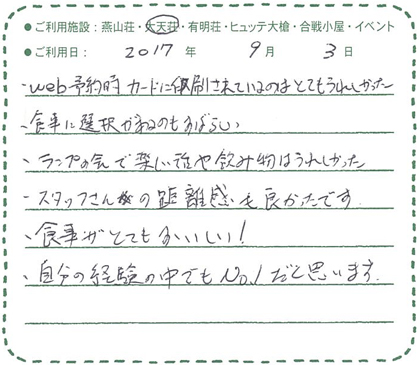 ●ご利用施設：燕山荘・大天荘・有明荘・ヒュッテ大槍・合戦小屋・イベント
●ご利用日：2017年 9月 3日
・web予約時カードに印刷されているのはとてもうれしかった
・食事に選択があるのもすばらしい
・ランプの会で楽しい話や飲み物はうれしかった
・スタッフさんの距離感も良かったです
・食事がとてもおいしい!
・自分の経験の中でもNo.1だと思います.